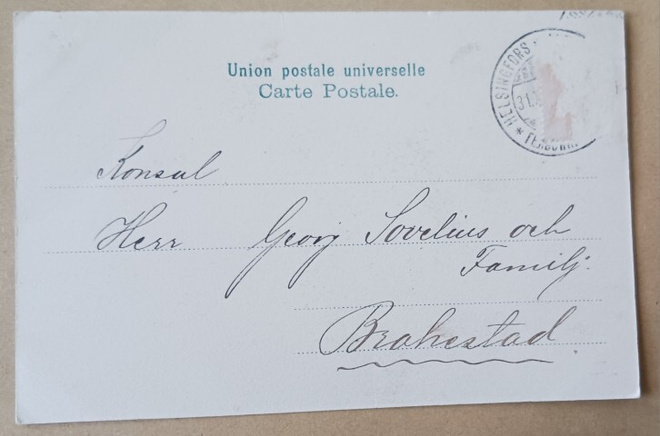 Union postale universelle
Carte Postale.
HELSINGFORS
31
Konsul
Herr Georg Sovelius och
Familj.
Brahestad